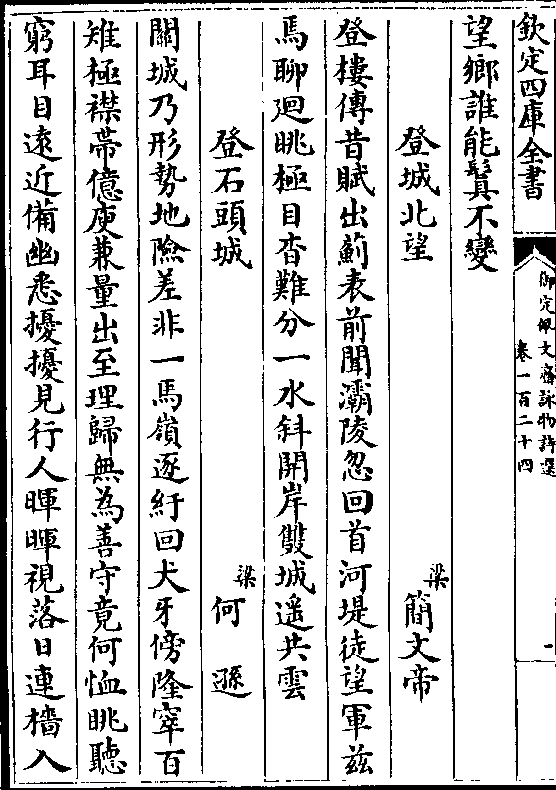 欽定四庫全書
御定佩文齋詠物詩選
卷一百二十四
一
望鄉誰能鬒不變
登城北望
梁簡文帝
登樓傳昔賦出薊表前聞灞陵忽回首河堤徒望軍茲
焉聊廻眺極目杳難分一水斜開岸雙城遥共雲
登石頭城
梁何遜
關城乃形勢地險差非一馬嶺逐紆回犬牙傍隆窣百
雉極襟帶億庾兼量出至理歸無為善守竟何恤眺聽
窮耳目逺近備幽悉擾擾見行人暉暉視落日連檣入